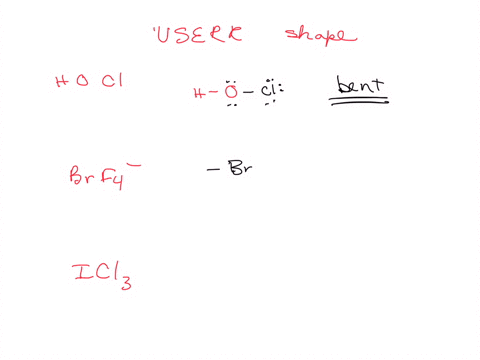 'USERR shape
HOCl H-O-Cl: bent
BrF4- -Br
ICl3